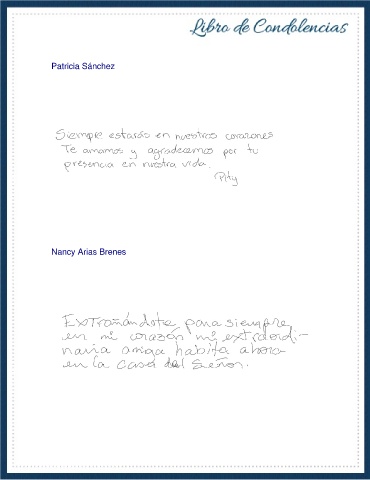 Libro de Condolencias
Patricia Sánchez
Siempre estarás en nuestros corazones
Te amamos y agradecemos por tu
presencia en nuestra vida.
Pity
Nancy Arias Brenes
Extrañándote para siempre
en mi corazón mi extraordi-
naria amiga habita ahora
en la casa del Señor.